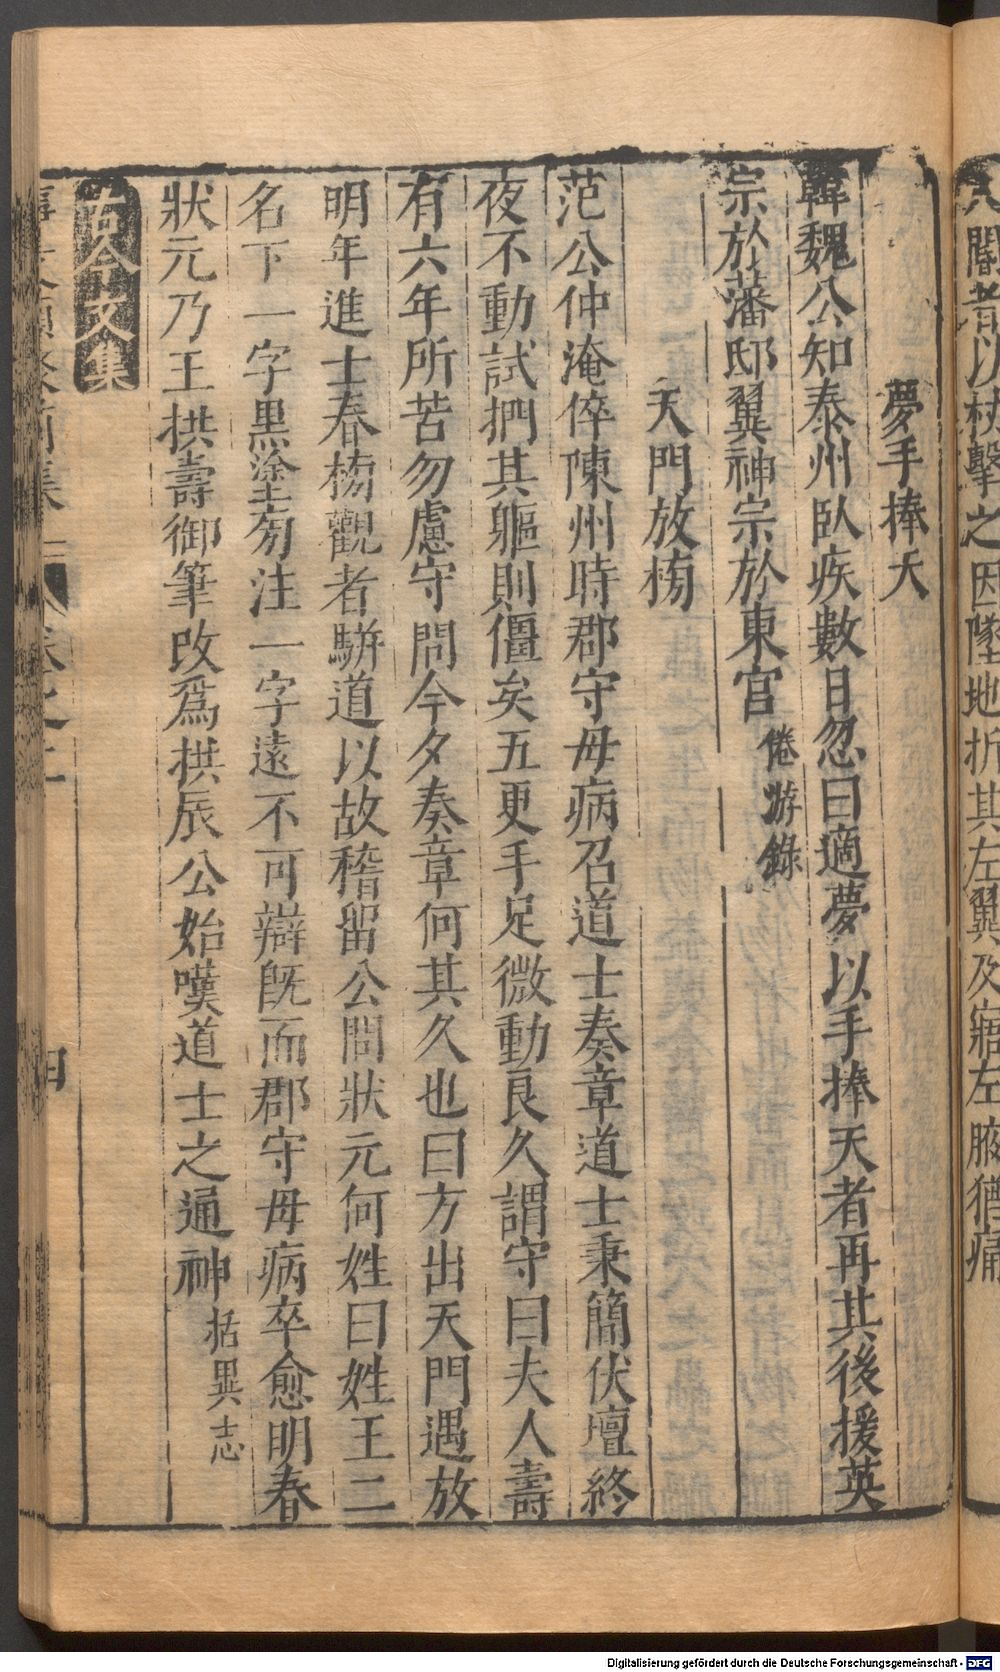 闇者以杖擊之因墜地折其左翼及寤左腋猶痛
夢手捧天
韓魏公知泰州臥疾數日忽曰適夢以手捧天者再其後援英
宗於藩邸翼神宗於東宫
倦游錄
天門放榜
范公仲淹倅陳州時郡守母病召道士奏章道士秉簡伏壇終
夜不動試捫其軀則僵矣五更手足微動良久謂守曰夫人壽
有六年所苦勿慮守問今夕奏章何其久也曰方出天門遇放
明年進士春榜觀者駢道以故稽留公問狀元何姓曰姓王二
名下一字黑塗旁注一字遠不可辯旣而郡守母病卒愈明春
狀元乃王拱壽御筆改爲拱辰公始嘆道士之通神
括異志
古今文集
四
Digitalisierung gefördert durch die Deutsche Forschungsgemeinschaft - DFG